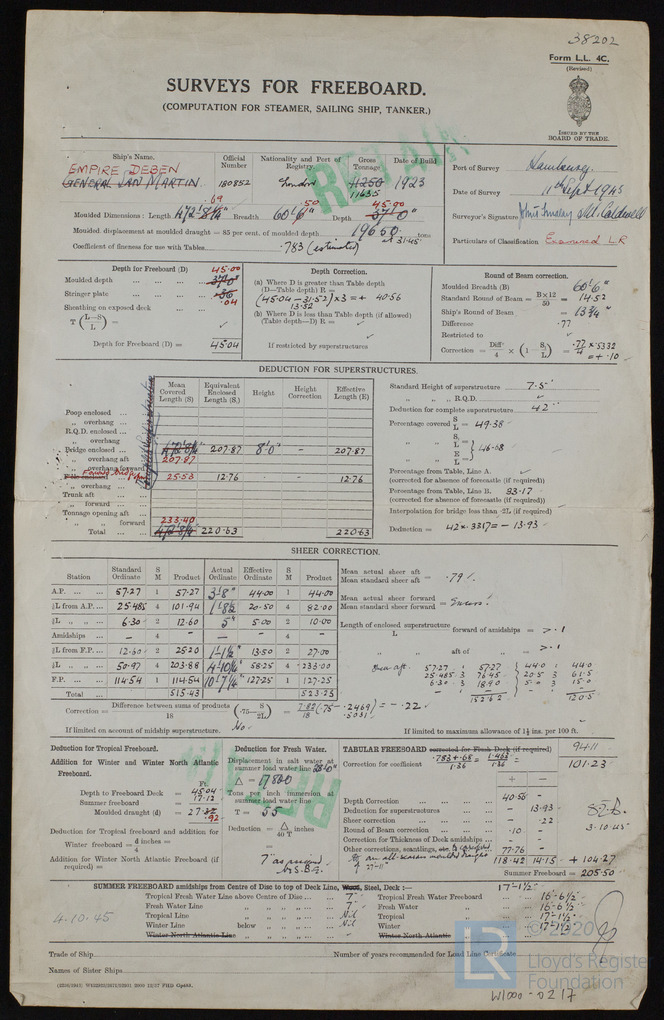 38202
Form L.L. 4C.
(Revised)
SURVEYS FOR FREEBOARD.
(COMPUTATION FOR STEAMER, SAILING SHIP, TANKER.)
ISSUED BY THE
BOARD OF TRADE.
RETAIN
Ship's Name. Official Number Nationality and Port of Registry Gross Tonnage Date of Build
EMPIRE DEBEN
GENERAL SAN MARTIN 180852 London 11250 11635 1923
Port of Survey Hamburg
Date of Survey 11th Sept 1945
Surveyor's Signature
Particulars of Classification Examined L.R
Moulded Dimensions: Length Breadth 60'6" Depth 37'0" 45.00
Moulded displacement at moulded draught = 85 per cent. of moulded depth 19650 tons
at 31.45'
Coefficient of fineness for use with Tables .783 (estimated)
Depth for Freeboard (D) 45.00
Moulded depth 37'0"
Stringer plate .04
Sheathing on exposed deck
T (L—S / L) =
Depth for Freeboard (D) = 45.04
Depth Correction.
(a) Where D is greater than Table depth
(D—Table depth) R =
(45.04 - 31.52) x 3 = + 40.56
13.52
(b) Where D is less than Table depth (if allowed)
(Table depth—D) R =
If restricted by superstructures
Round of Beam correction.
Moulded Breadth (B) 60'6"
Standard Round of Beam = B×12 / 50 = 14.52
Ship's Round of Beam = 13 3/4"
Difference .77
Restricted to
Correction = Diff / 4 × (1 — S₁ / L) = .77 / 4 x .5332
= + .10
DEDUCTION FOR SUPERSTRUCTURES.
Mean Covered Length (S) Equivalent Enclosed Length (S₁) Height Height Correction Effective Length (E)
Poop enclosed
„ overhang
R.Q.D. enclosed
„ overhang
Bridge enclosed 207.87 8'0" - 207.87
„ overhang aft 207.87
„ overhang forward
F'cle enclosed 25.53 12.76 - 12.76
„ overhang
Trunk aft
„ forward
Tonnage opening aft
„ „ forward 233.40
Total 220.63 220.63
Standard Height of superstructure 7.5'
„ „ R.Q.D.
Deduction for complete superstructure 42"
Percentage covered S / L = 49.38
„ „ S₁ / L =
„ „ E / L = 46.68
Percentage from Table, Line A.
(corrected for absence of forecastle (if required))
Percentage from Table, Line B. 33.17
(corrected for absence of forecastle (if required))
Interpolation for bridge less than ·2L (if required)
Deduction = 42 x .3317 = - 13.93
SHEER CORRECTION.
Station Standard Ordinate S M Product Actual Ordinate Effective Ordinate S M Product
A.P. 57.27 1 57.27 3'8" 44.00 1 44.00
⅙L from A.P. 25.485 4 101.94 1'8½ 20.50 4 82.00
⅓L „ 6.30 2 12.60 5" 5.00 2 10.00
Amidships - 4 - - - 4 -
⅓L from F.P. 12.60 2 25.20 1'1½" 13.50 2 27.00
⅙L „ 50.97 4 203.88 4'10¼" 58.25 4 233.00
F.P. 114.54 1 114.54 10'7¼" 127.25 1 127.25
Total 515.43 523.25
Mean actual sheer aft / Mean standard sheer aft = .79
Mean actual sheer forward / Mean standard sheer forward = Excess.
Length of enclosed superstructure / L forward of amidships = > .1
„ „ aft of „ = > .1
Sheer aft. 57.27 1 57.27 44.0 1 44.0
25.485 3 76.45 20.5 3 61.5
6.30 3 18.90 5.0 3 15.0
152.62 120.5
Correction = Difference between sums of products / 18 (·75— S / 2L) = 7.82 / 18 (.75 - .2469) = - .22
.5031
If limited on account of midship superstructure. No.
If limited to maximum allowance of 1½ ins. per 100 ft.
Deduction for Tropical Freeboard.
Addition for Winter and Winter North Atlantic Freeboard.
Ft.
Depth to Freeboard Deck = 45.04
Summer freeboard = 17.12
Moulded draught (d) = 27.92
Deduction for Tropical freeboard and addition for
Winter freeboard = d / 4 inches =
Addition for Winter North Atlantic Freeboard (if required) =
Deduction for Fresh Water.
Displacement in salt water at summer load water line
Δ = 17820
Tons per inch immersion at summer load water line
T = 55
Deduction = Δ / 40 T inches
=
7" as assigned by S.B.G.
TABULAR FREEBOARD corrected for Flush Deck (if required) 94.11
Correction for coefficient .783 + .68 / 1.36 = 1.463 / 1.36 101.23
+ -
Depth Correction 40.56 -
Deduction for superstructures - 13.93
Sheer correction - .22
Round of Beam correction .10 -
Correction for Thickness of Deck amidships - -
Other corrections, scantlings, etc. to correspond 77.76 -
to an all-season moulded draught of 27'-11" 118.42 14.15 + 104.27
Summer Freeboard = 205.50
3.10.45
SUMMER FREEBOARD amidships from Centre of Disc to top of Deck Line, Wood, Steel, Deck :— 17'-1½"
Tropical Fresh Water Line above Centre of Disc 7"
Fresh Water Line „ „ 7"
Tropical Line „ „ Nil
Winter Line below „ „ Nil
Winter North Atlantic Line „ „
Tropical Fresh Water Freeboard 16'-6½"
Fresh Water „ 16'-6½"
Tropical „ 17'-1½"
Winter „ 17'-1½"
Winter North Atlantic „
4.10.45
Trade of Ship
Number of years recommended for Load Line Certificate
Names of Sister Ships
© 2020
LR
Lloyd's Register
Foundation
W1000-0217